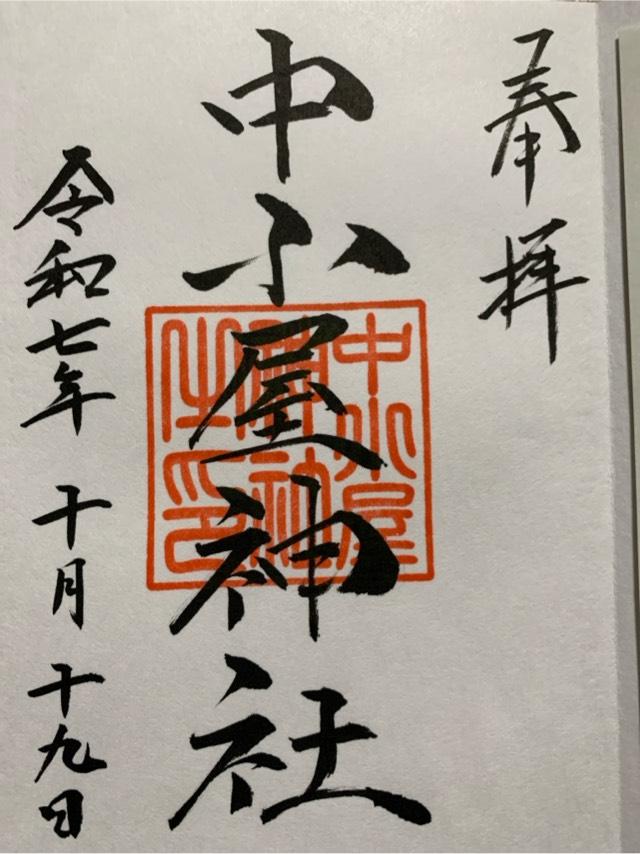 奉拝
中小屋神社
中小屋神社之印
令和七年 十月 十九日